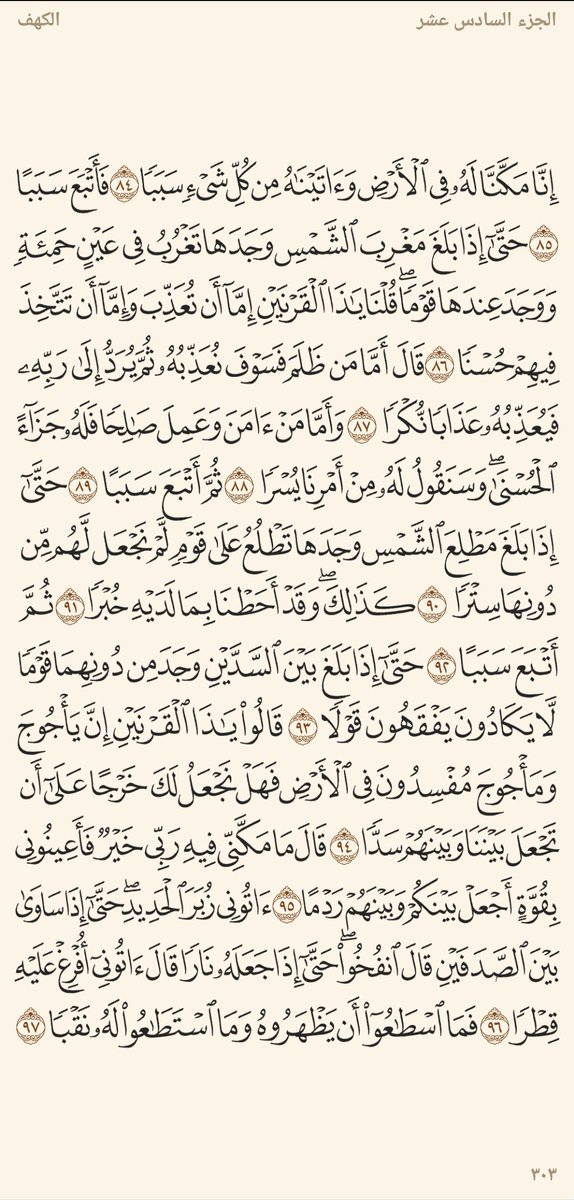 الكهف الجزء السادس عشر
إِنَّا مَكَّنَّا لَهُۥ فِي ٱلۡأَرۡضِ وَءَاتَيۡنَٰهُ مِن كُلِّ شَيۡءٖ سَبَبٗا ٨٤ فَأَتۡبَعَ سَبَبًا
٨٥ حَتَّىٰٓ إِذَا بَلَغَ مَغۡرِبَ ٱلشَّمۡسِ وَجَدَهَا تَغۡرُبُ فِي عَيۡنٍ حَمِئَةٖ
وَوَجَدَ عِندَهَا قَوۡمٗاۖ قُلۡنَا يَٰذَا ٱلۡقَرۡنَيۡنِ إِمَّآ أَن تُعَذِّبَ وَإِمَّآ أَن تَتَّخِذَ
فِيهِمۡ حُسۡنٗا ٨٦ قَالَ أَمَّا مَن ظَلَمَ فَسَوۡفَ نُعَذِّبُهُۥ ثُمَّ يُرَدُّ إِلَىٰ رَبِّهِۦ
فَيُعَذِّبُهُۥ عَذَابٗا نُّكۡرٗا ٨٧ وَأَمَّا مَنۡ ءَامَنَ وَعَمِلَ صَٰلِحٗا فَلَهُۥ جَزَآءً
ٱلۡحُسۡنَىٰۖ وَسَنَقُولُ لَهُۥ مِنۡ أَمۡرِنَا يُسۡرٗا ٨٨ ثُمَّ أَتۡبَعَ سَبَبًا ٨٩ حَتَّىٰٓ
إِذَا بَلَغَ مَطۡلِعَ ٱلشَّمۡسِ وَجَدَهَا تَطۡلُعُ عَلَىٰ قَوۡمٖ لَّمۡ نَجۡعَل لَّهُم مِّن
دُونِهَا سِتۡرٗا ٩٠ كَذَٰلِكَۖ وَقَدۡ أَحَطۡنَا بِمَا لَدَيۡهِ خُبۡرٗا ٩١ ثُمَّ
أَتۡبَعَ سَبَبًا ٩٢ حَتَّىٰٓ إِذَا بَلَغَ بَيۡنَ ٱلسَّدَّيۡنِ وَجَدَ مِن دُونِهِمَا قَوۡمٗا
لَّا يَكَادُونَ يَفۡقَهُونَ قَوۡلٗا ٩٣ قَالُواْ يَٰذَا ٱلۡقَرۡنَيۡنِ إِنَّ يَأۡجُوجَ
وَمَأۡجُوجَ مُفۡسِدُونَ فِي ٱلۡأَرۡضِ فَهَلۡ نَجۡعَلُ لَكَ خَرۡجًا عَلَىٰٓ أَن
تَجۡعَلَ بَيۡنَنَا وَبَيۡنَهُمۡ سَدّٗا ٩٤ قَالَ مَا مَكَّنِّي فِيهِ رَبِّي خَيۡرٞ فَأَعِينُونِي
بِقُوَّةٍ أَجۡعَلۡ بَيۡنَكُمۡ وَبَيۡنَهُمۡ رَدۡمًا ٩٥ ءَاتُونِي زُبَرَ ٱلۡحَدِيدِۖ حَتَّىٰٓ إِذَا سَاوَىٰ
بَيۡنَ ٱلصَّدَفَيۡنِ قَالَ ٱنفُخُواْۖ حَتَّىٰٓ إِذَا جَعَلَهُۥ نَارٗا قَالَ ءَاتُونِيٓ أُفۡرِغۡ عَلَيۡهِ
قِطۡرٗا ٩٦ فَمَا ٱسۡطَٰعُوٓاْ أَن يَظۡهَرُوهُ وَمَا ٱسۡتَطَٰعُواْ لَهُۥ نَقۡبٗا ٩٧
٣٠٣